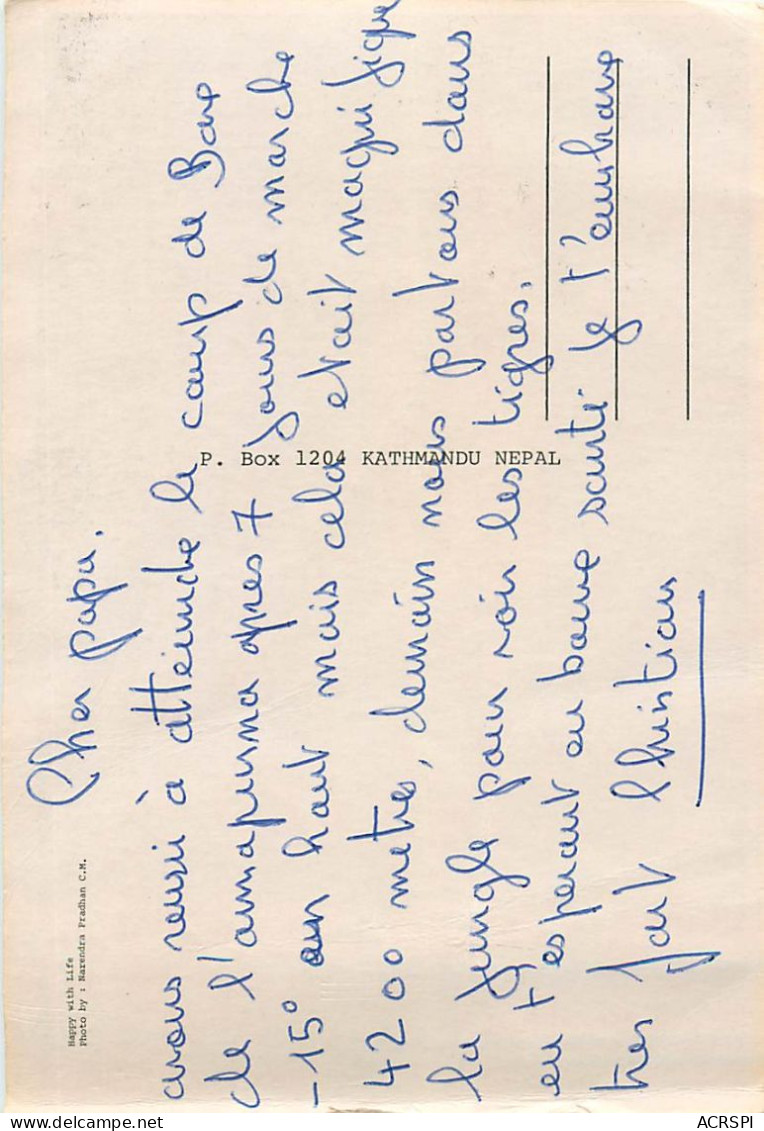 Happy with Life
Photo by : Narendra Pradhan C.M.
Cher papa.
avons reussi à atteindre le camp de Base
de l'annapurna apres 7 jours de marche
-15° en haut mais cela etait magnifique
4200 metres, demain nous partons dans
la jungle pour voir les tigres.
en t'esperant en bonne santé je t'embrasse
tres fort Christian
P. Box 1204 KATHMANDU NEPAL
ACRSPI